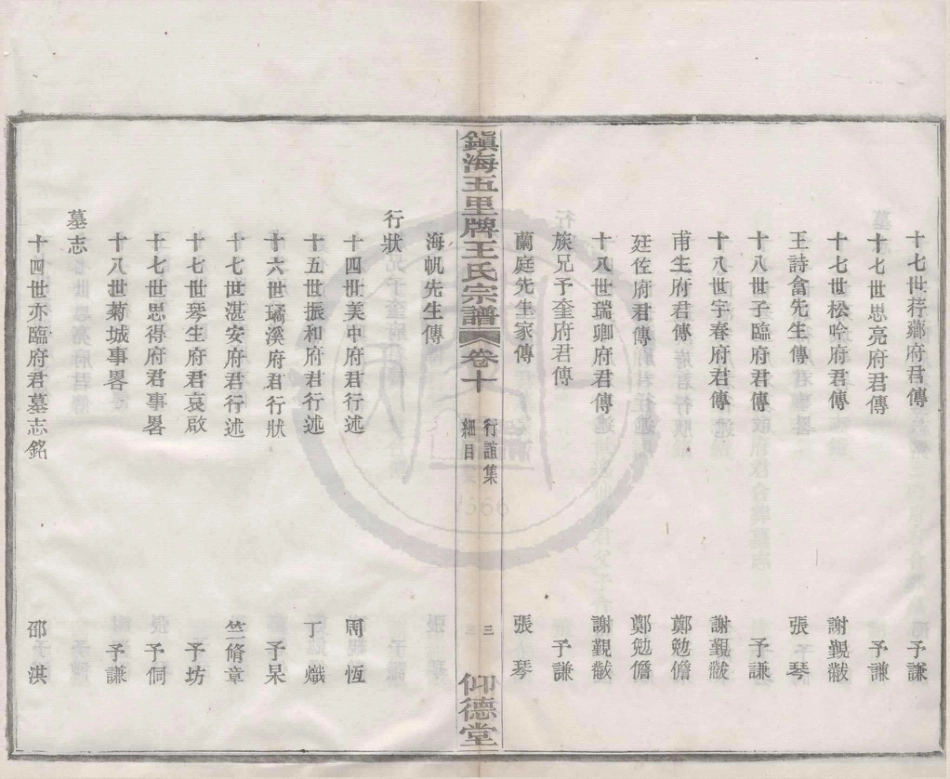 十七世荇薌府君傳 予謙
十七世思亮府君傳 予謙
十七世松吟府君傳 謝覲黻
王詩龕先生傳 張琴
十八世子臨府君傳 予謙
十八世宇春府君傳 謝覲黻
甫生府君傳 鄭勉儋
廷佐府君傳 鄭勉儋
十八世瑞卿府君傳 謝覲黻
族兄予奎府君傳 予謙
蘭庭先生家傳 張琴
鎮海五里牌王氏宗譜 卷十 行誼集 細目 三 仰德堂
海帆先生傳
行狀
十四世美中府君行述 周恆
十五世振和府君行述 丁熾
十六世璚溪府君行狀 予杲
十七世湛安府君行述 竺脩章
十七世琴生府君哀啟 予坊
十七世思得府君事畧 予侗
十八世菊城事畧 予謙
墓志
十四世亦臨府君墓志銘 邵淇